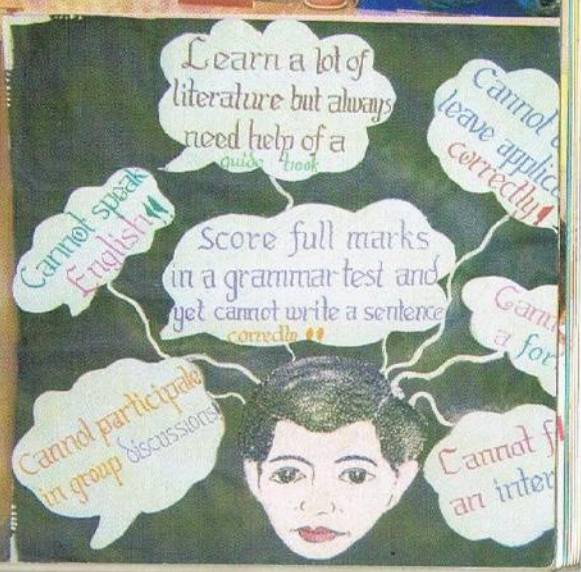 Learn a lot of
literature but always
need help of a
guide book
Cannot
leave
correctly!
Cannot speak
English!!
Score full marks
in a grammar test and
yet cannot write a sentence
correctly !!
a
Cannot participate
in group discussions!
Cannot
an